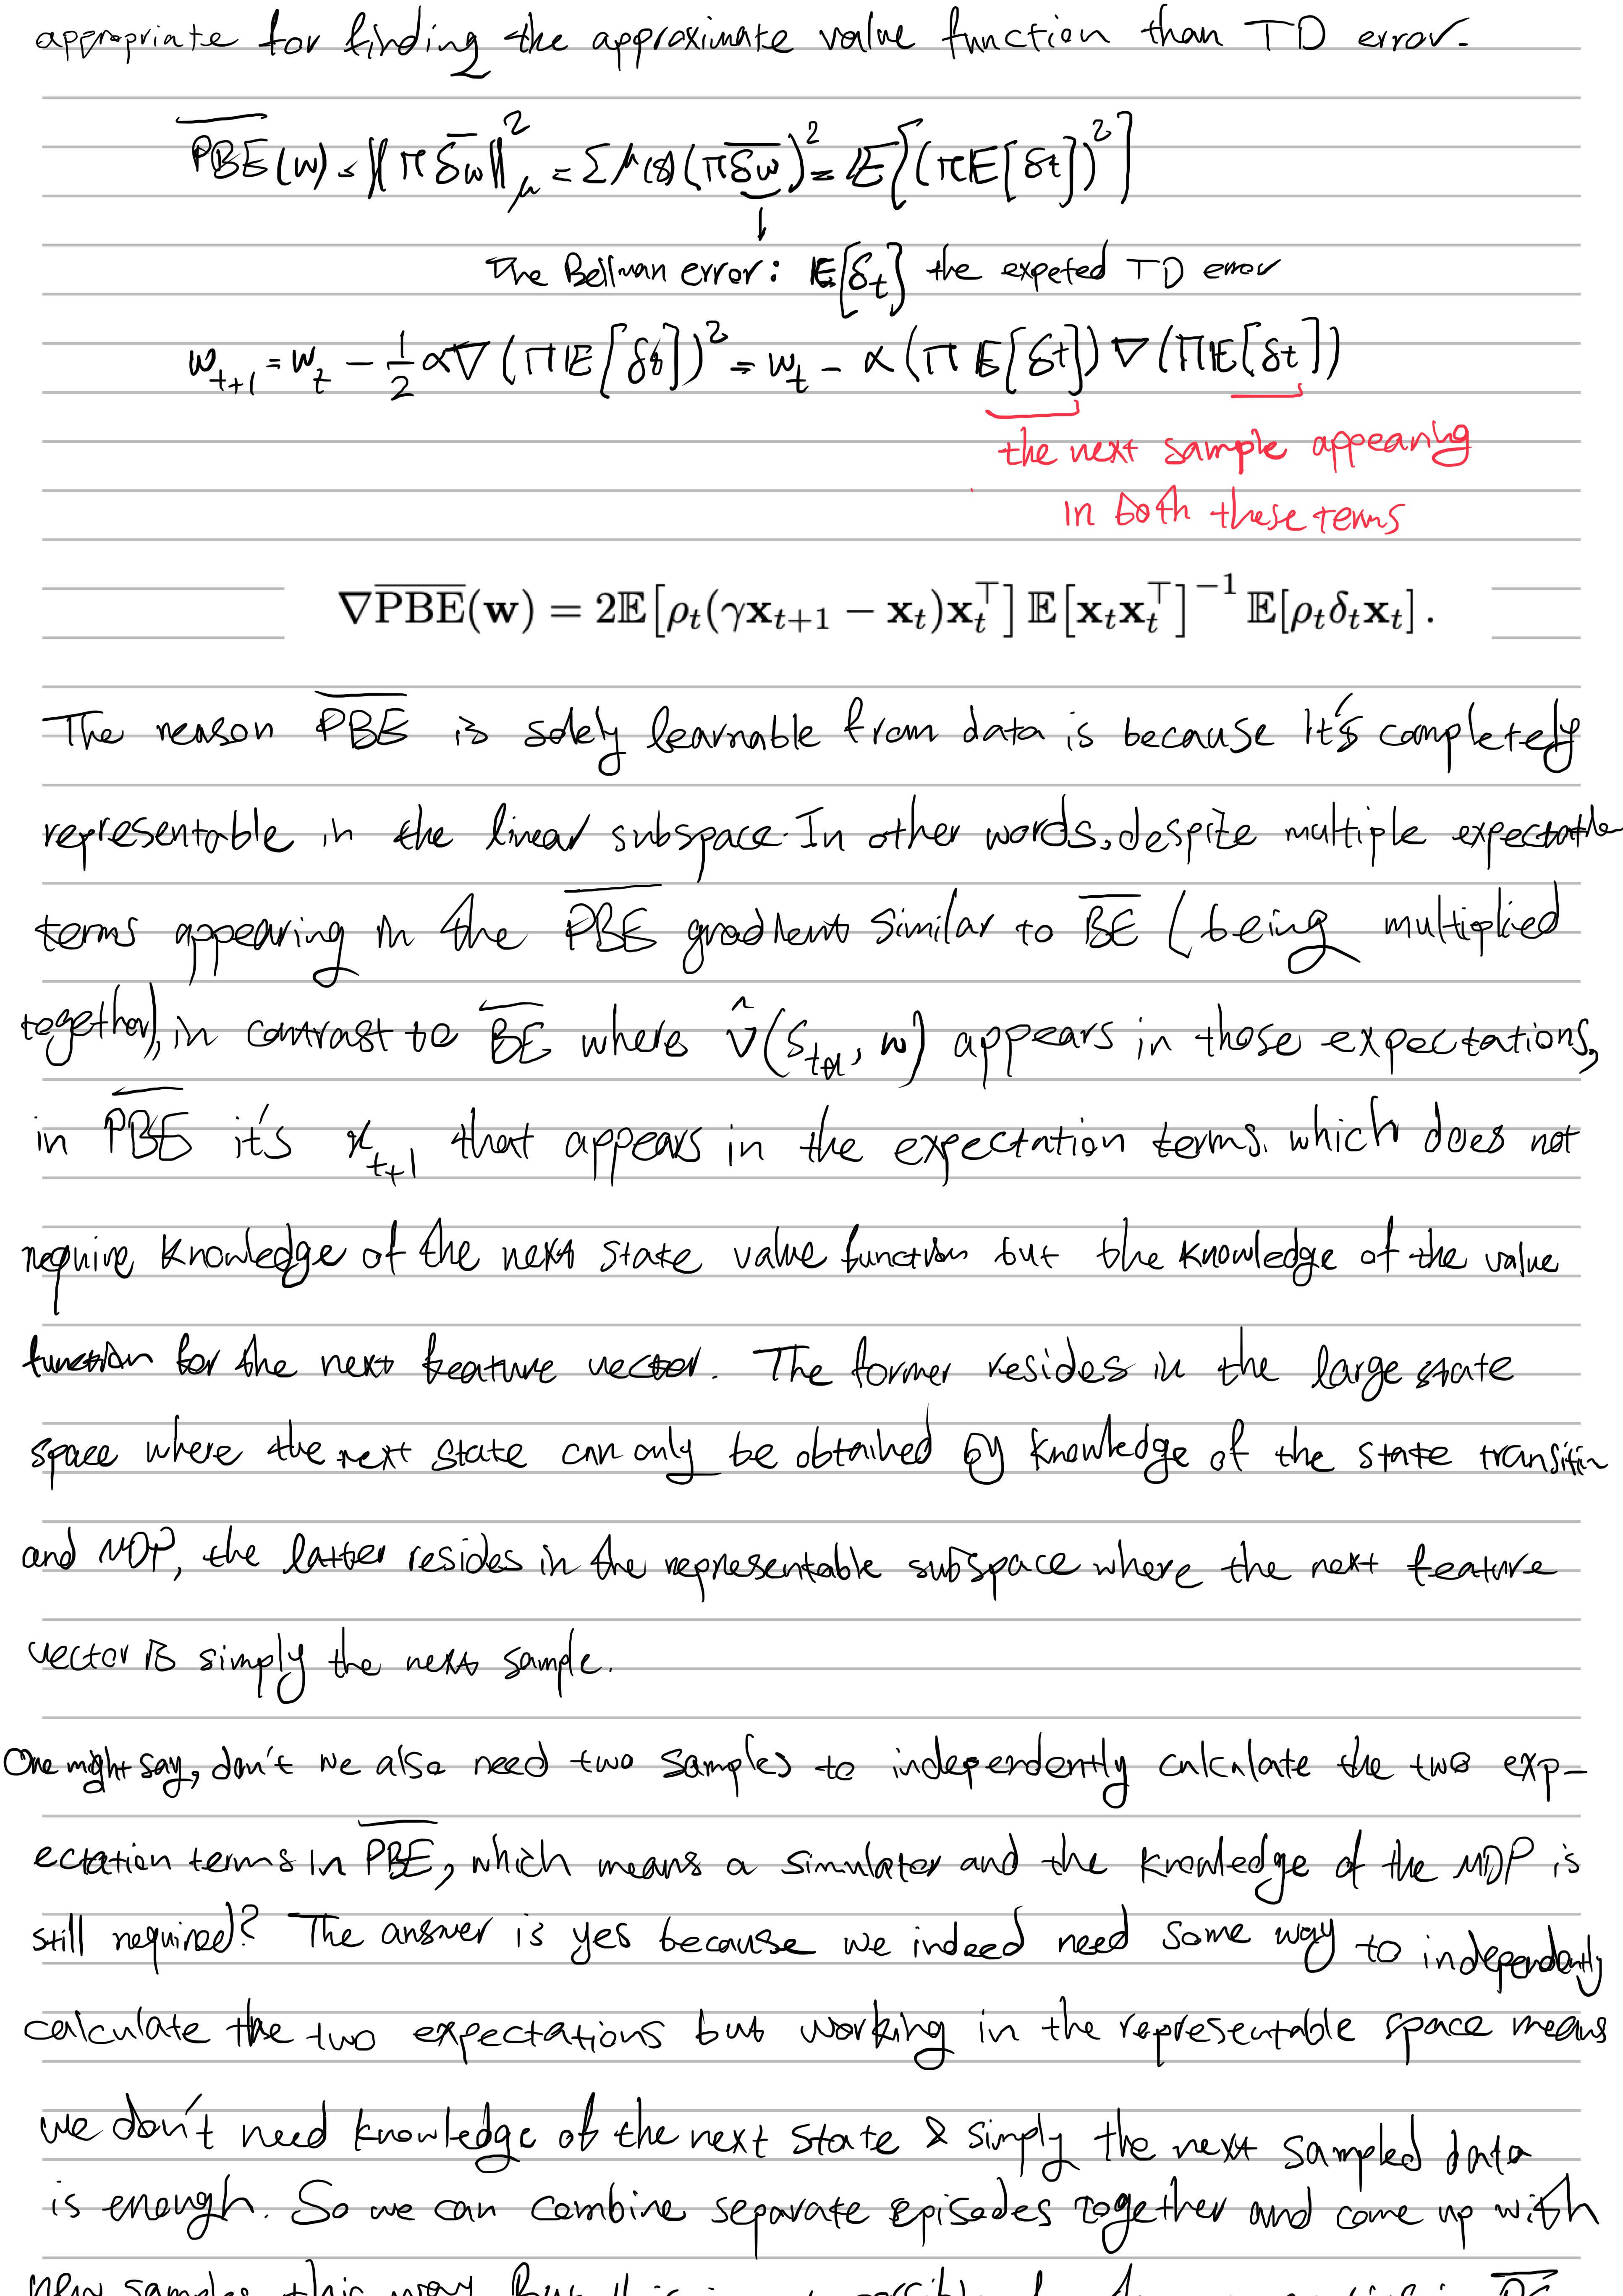 appropriate for finding the approximate value function than TD error.
P̅B̅E̅(w) = ‖π δ̅w‖²_μ = Σ μ(s) (π δ̅w)² = 𝔼[(π𝔼[δt])²]
↓
The Bellman error: 𝔼[δt] the expeted TD error
w_{t+1} = w_t - 1/2 α∇ (Π𝔼[δt])² = w_t - α (Π 𝔼[δt]) ∇ (Π𝔼[δt])
the next sample appearing
in both these terms
∇P̅B̅E̅(w) = 2𝔼[ρ_t(γx_{t+1} − x_t)x_t^⊤] 𝔼[x_t x_t^⊤]^{−1} 𝔼[ρ_t δ_t x_t] .
The reason P̅B̅E̅ is solely learnable from data is because it's completely
representable in the linear subspace. In other words, despite multiple expectation
terms appearing in the P̅B̅E̅ gradient similar to B̅E̅ (being multiplied
together), in contrast to B̅E̅ where v̂(S_{t+1}, w) appears in those expectations,
in P̅B̅E̅ it's x_{t+1} that appears in the expectation terms. which does not
require knowledge of the next state value function but the knowledge of the value
function for the next feature vector. The former resides in the large state
space where the next state can only be obtained by knowledge of the state transition
and MDP, the latter resides in the representable subspace where the next feature
vector is simply the next sample.
One might say, don't we also need two samples to independently calculate the two exp-
ectation terms in P̅B̅E̅, which means a simulater and the knowledge of the MDP is
still required? The answer is yes because we indeed need some way to independently
calculate the two expectations but working in the representable space means
we don't need knowledge of the next state & simply the next sampled data
is enough. So we can combine separate episodes together and come up with
new samples this way. But this is